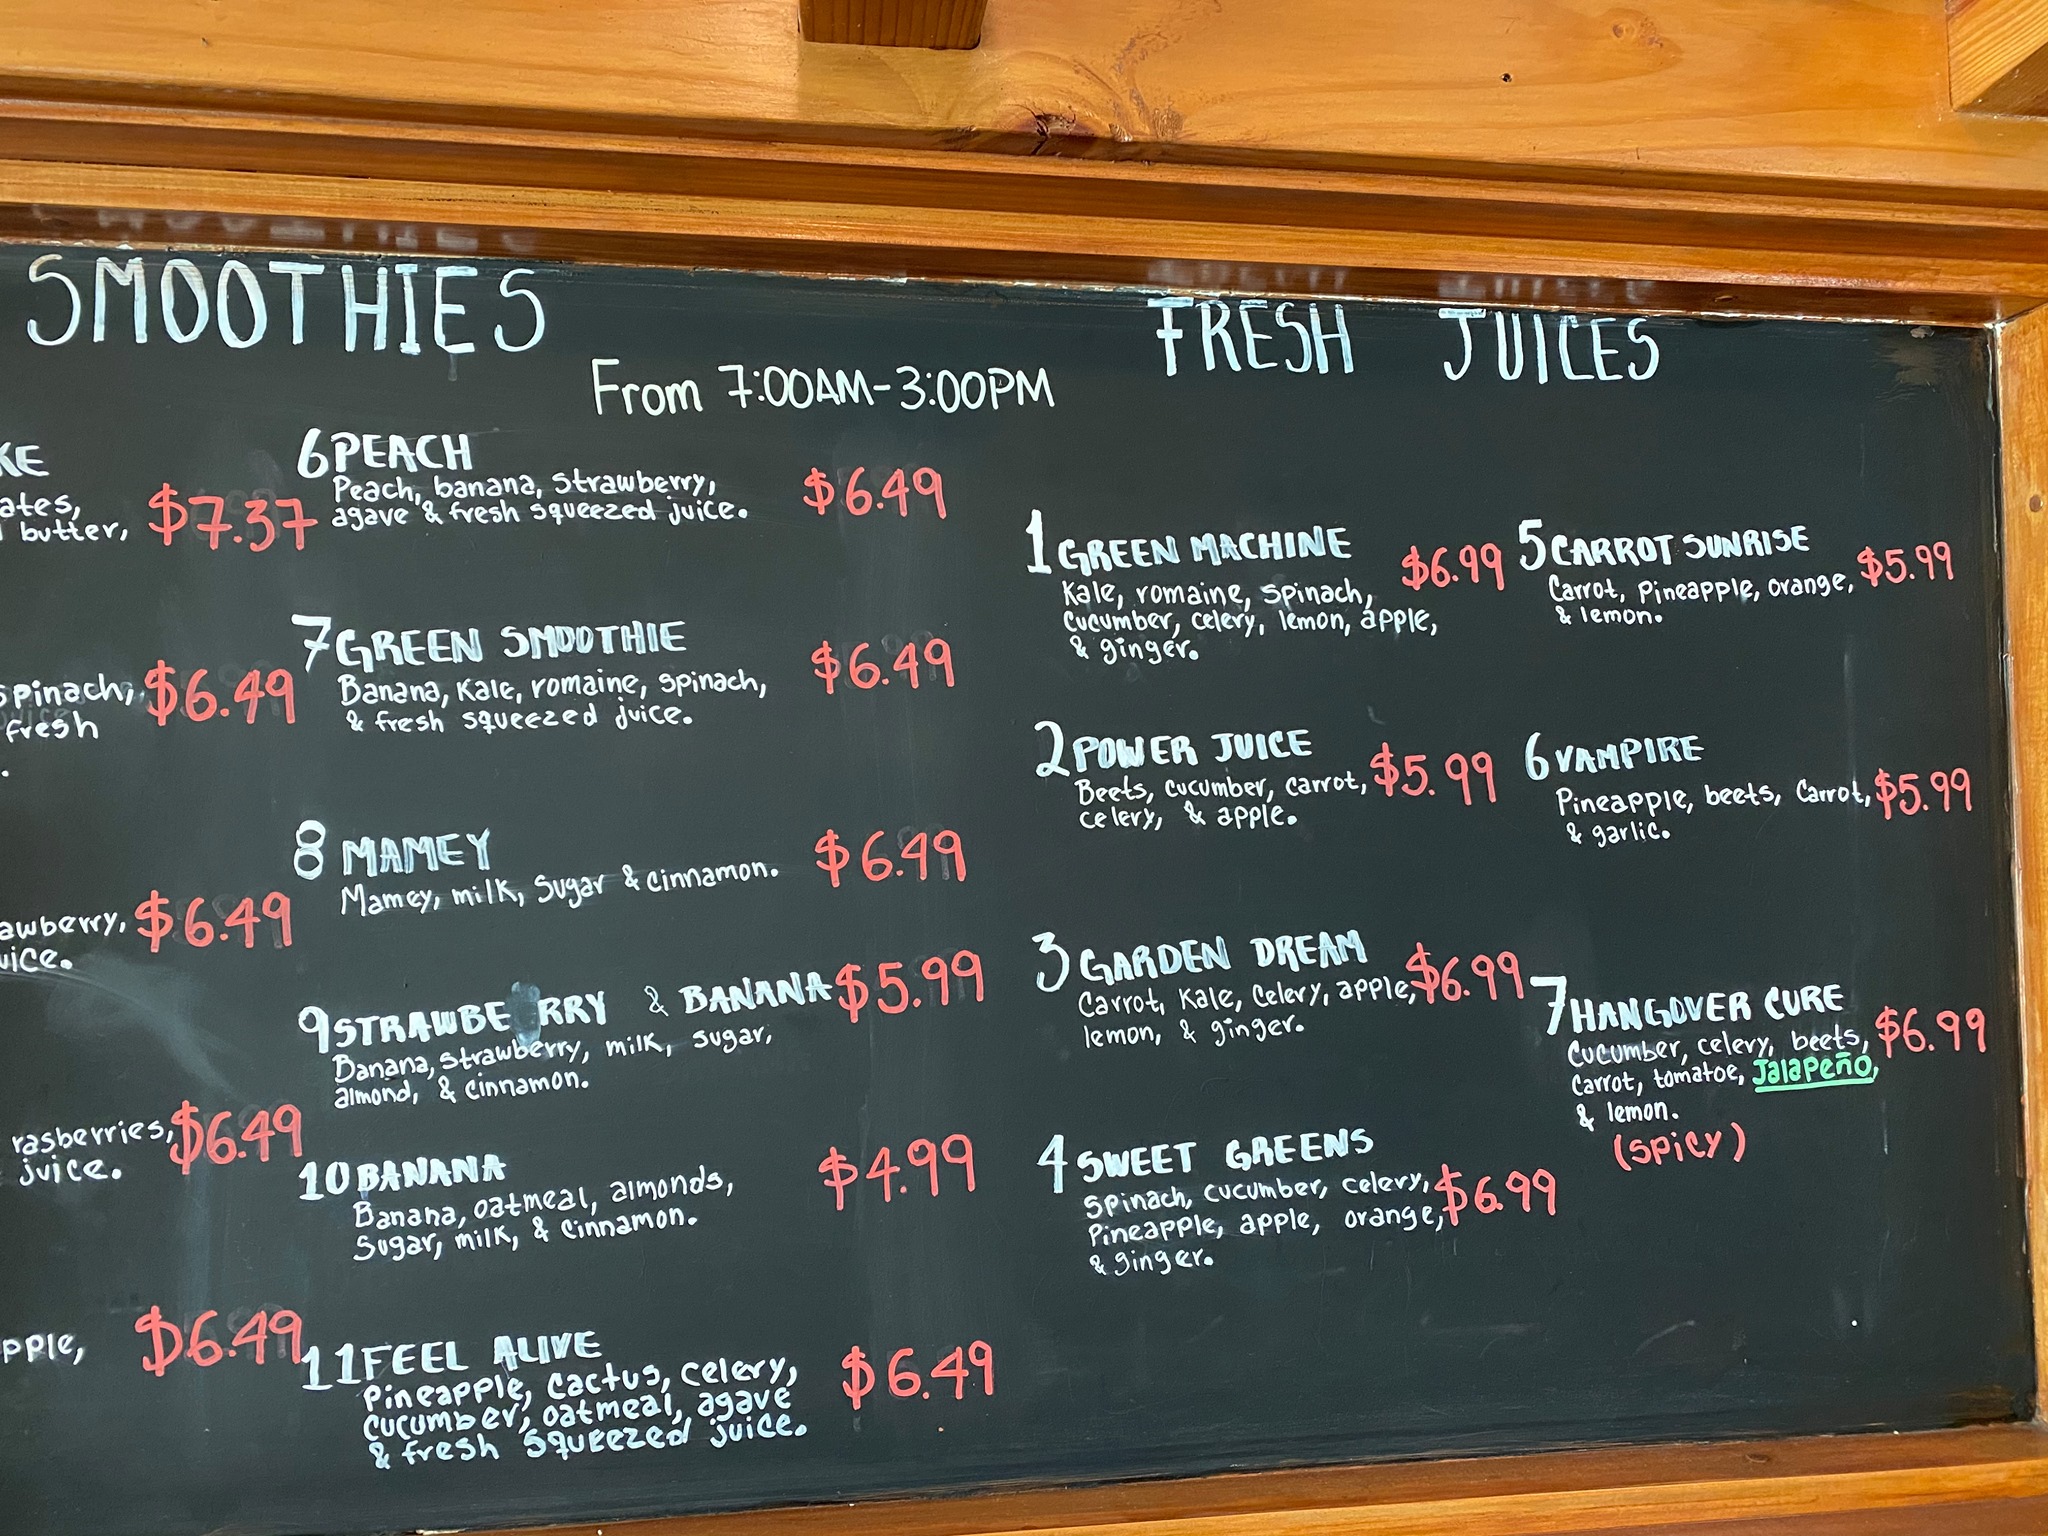 SMOOTHIES
From 7:00AM-3:00PM
butter,
$7.37
spinach,
$6.49
fresh
$6.49
rasberries,
juice.
$6.49
$6.49
6 PEACH
Peach, banana, strawberry,
agave & fresh squeezed juice.
$6.49
7 GREEN SMOOTHIE
Banana, Kale, romaine, spinach,
& fresh squeezed juice.
$6.49
8 MAMEY
Mamey, milk, sugar & cinnamon.
$6.49
9 STRAWBERRY & BANANA
$5.99
Banana, strawberry, milk, sugar,
almond, & cinnamon.
10 BANANA
Banana, oatmeal, almonds,
Sugar, milk, & cinnamon.
$4.99
11 FEEL ALIVE
Pineapple, cactus, celery,
cucumber, oatmeal, agave
& fresh squeezed juice.
$6.49
FRESH JUICES
1 GREEN MACHINE
$6.99
Kale, romaine, spinach,
cucumber, celery, lemon, apple,
& ginger.
2 POWER JUICE
Beets, cucumber, carrot,
celery, & apple.
$5.99
3 GARDEN DREAM
Carrot, Kale, celery, apple,
lemon, & ginger.
$6.99
4 SWEET GREENS
Spinach, cucumber, celery,
Pineapple, apple, orange,
& ginger.
$6.99
5 CARROT SUNRISE
Carrot, Pineapple, orange,
& lemon.
$5.99
6 VAMPIRE
Pineapple, beets, carrot,
& garlic.
$5.99
7 HANGOVER CURE
Cucumber, celery, beets,
Carrot, tomatoe, Jalapeño,
& lemon.
$6.99
(SPICY)